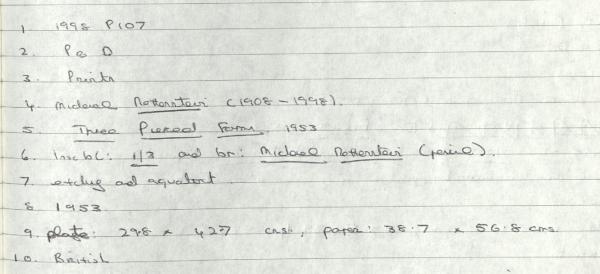 1 1998 P107
2. P & D
3. Prints
4. Michael Rothenstein (1908 - 1998).
5 Three Pierced Forms, 1953
6. Insc bl: 1/3 and br: Michael Rothenstein (pencil).
7. etching and aquatint.
8 1953
9. plate: 29.8 x 42.7 cms., paper: 38.7 x 56.8 cms.
10. British